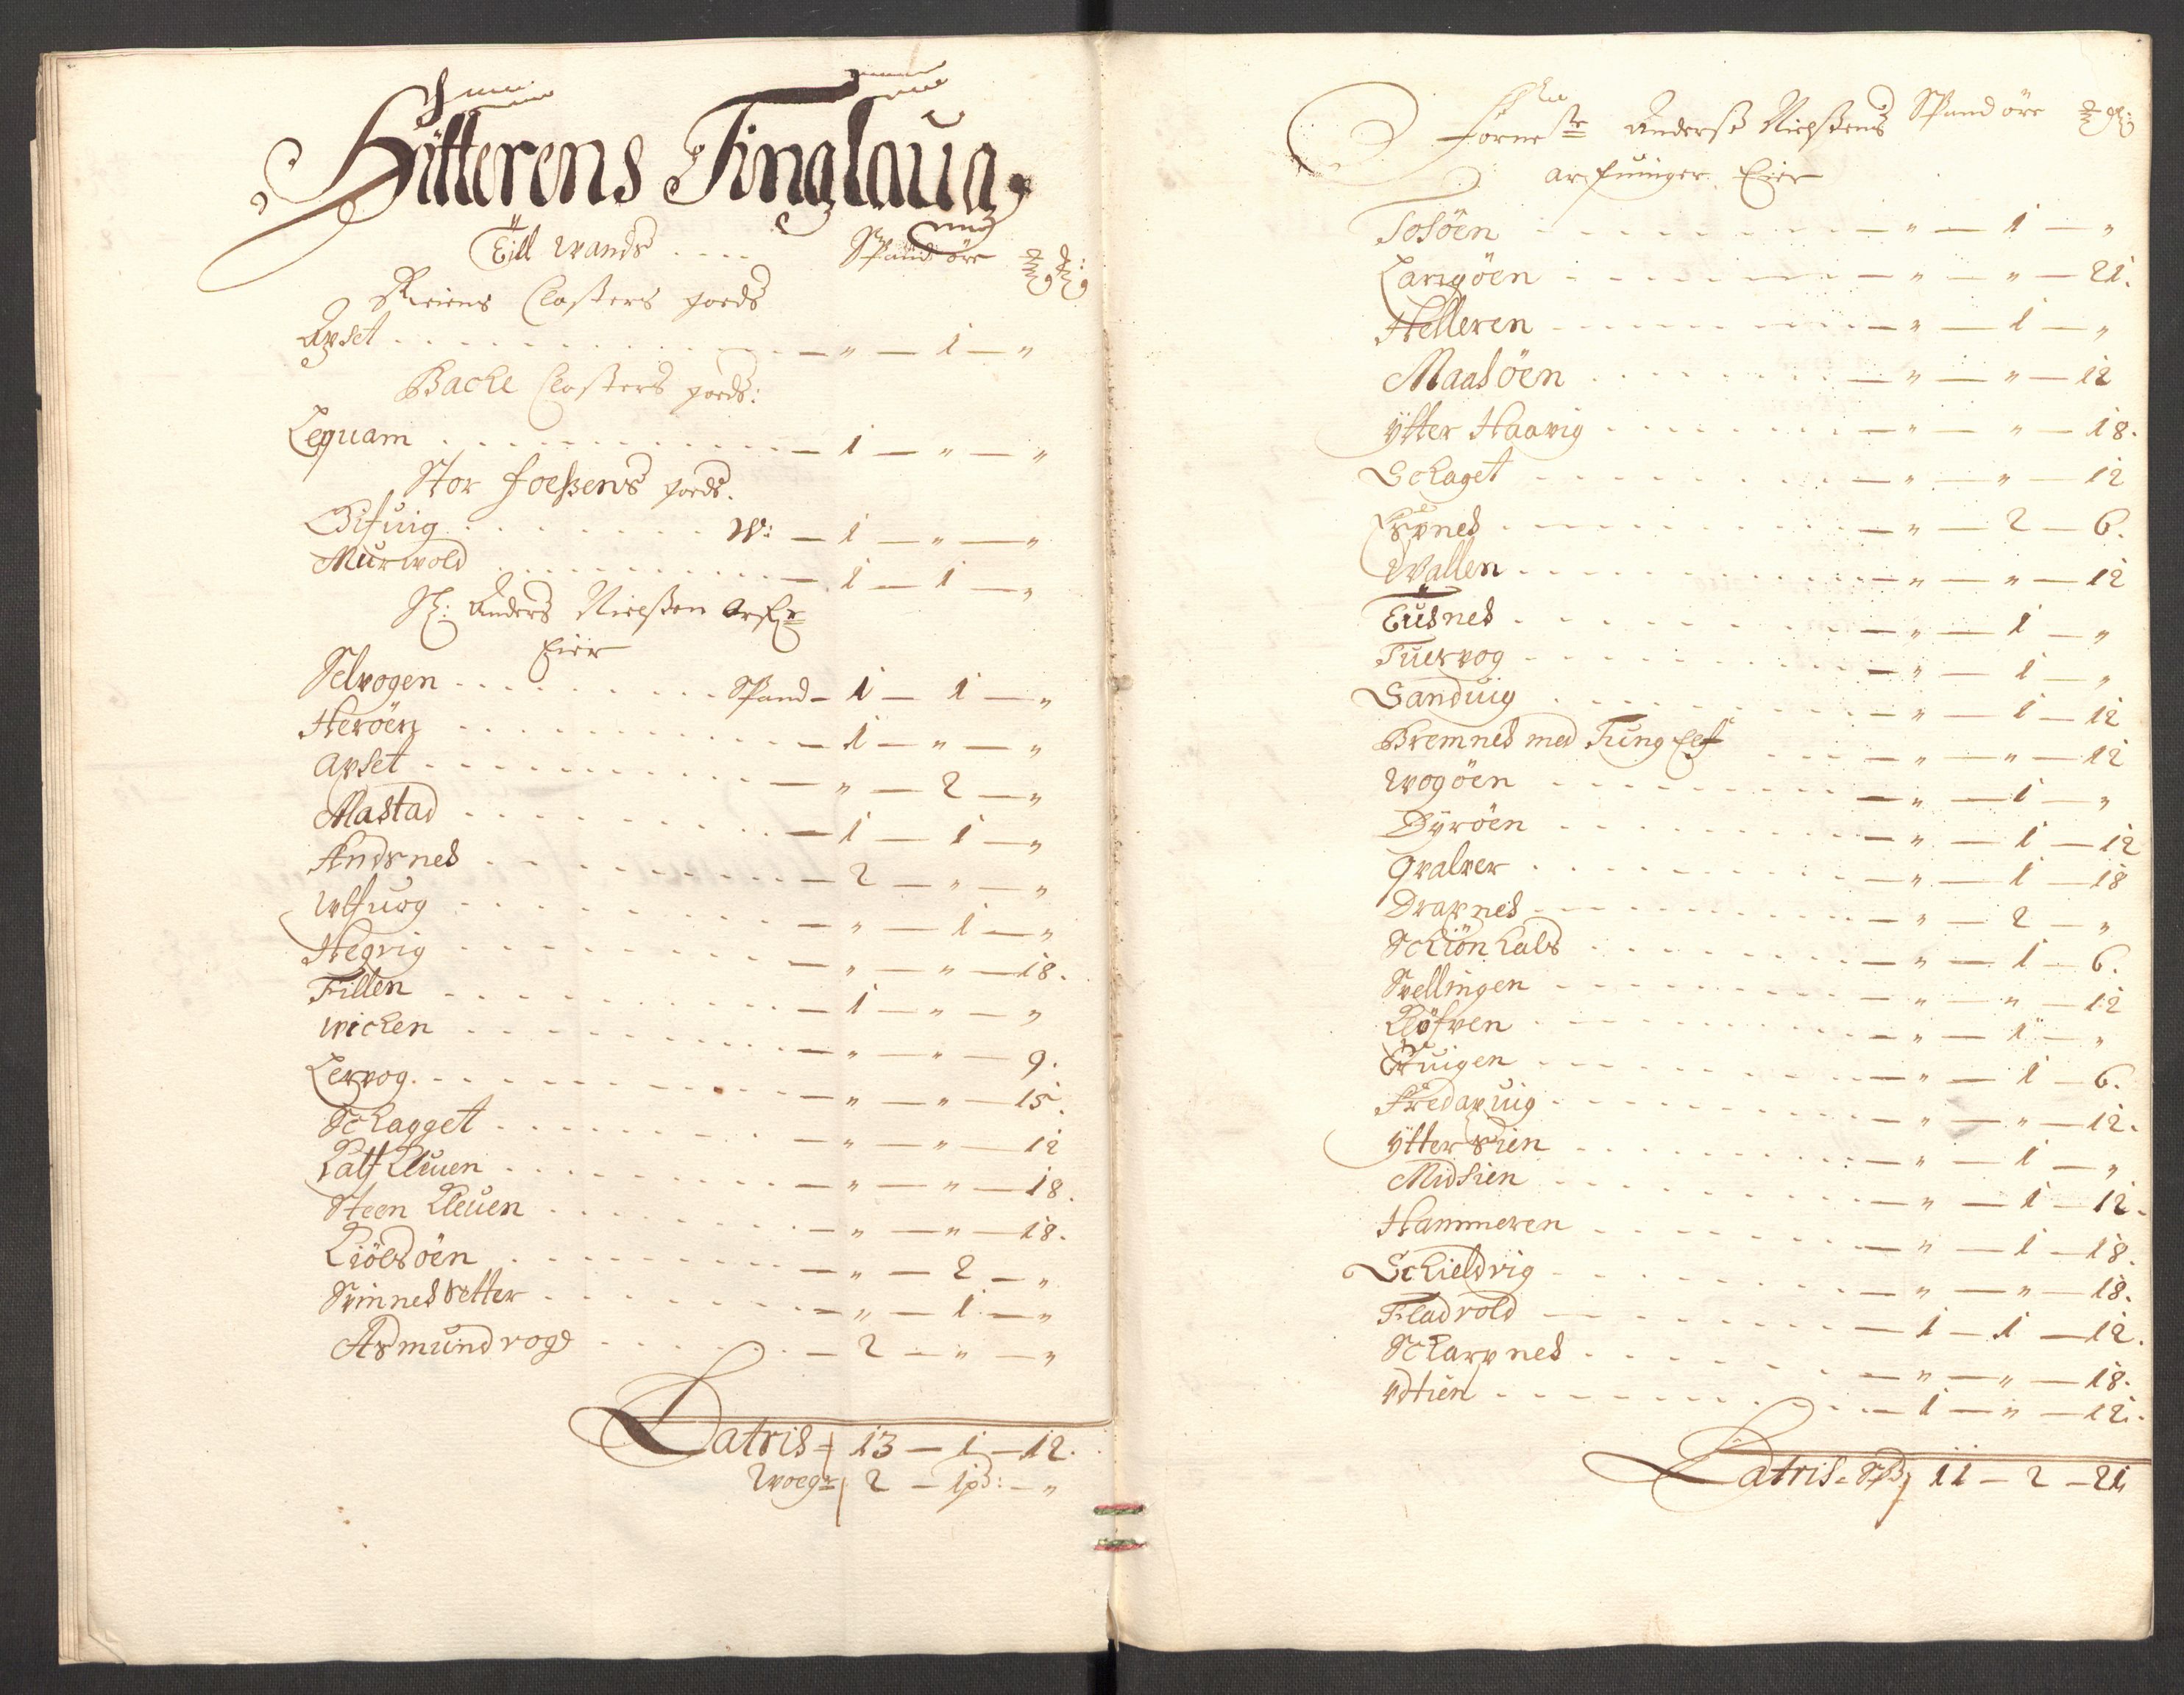 Hitterens Tinglaug
Till wands .... Spand öre mkl:
Reiens Closters gods
Apset - " - 1 - "
Backe Closters gods:
Lequam - 1 - " - "
Stor foeßens gods.
Gifuig W: - 1 - " - "
Murwold - 1 - 1 - "
Sl: Anders Nielßen Arf:
Eier
Selvogen Spand - 1 - 1 - "
Heröen - 1 - " - "
Apset - " - 2 - "
Mastad - 1 - 1 - "
Andsnes - 2 - " - "
Ulfuog - " - 1 - "
Hegvig - " - " - 18.
Fillen - 1 - " - "
Wicken - " - " - 9.
Lervog - " - " - 15.
Schagget - " - " - 12
Kalf Kleuen - " - " - 18.
Steen Kleuen - " - " - 18.
Kiölsöen - " - 2 - "
Svinnes Setter - " - 1 - "
Asmundvog - 2 - " - "
Latris 13 - 1 - 12.
Woeg 2 - 1 pd: - "
Forne Anderss Nielßens Spand öre
arfuinger Eier
Tosöen - " - 1 - "
Langöen - " - " - 21.
Helleren - " - 1 - "
Maasöen - " - " - 12
Ytter Haavig - " - " - 18.
Schaget - " - " - 12
- " - 2 - 6.
Wallen - " - " - 12
Tusnes - " - 1 - "
Tuervog - " - 1 - "
Sanduig - " - 1 - 12
Bremnes med Tung - " - " - 12
Wogöen - " - 1 - "
Dyröen - " - 1 - 12
Qvalver - " - 1 - 18
Drapnes - " - 2 - "
Schiön Hals - " - 1 - 6.
Svellingen - " - " - 12
Klöfven - " - 1 - "
- " - 1 - 6.
Fredapuig - " - " - 12.
Ytter Sien - " - 1 - "
Midsien - " - 1 - 12.
Hammeren - " - 1 - 18.
Schieldvig - " - " - 18.
Fladvold - 1 - 1 - 12.
Scharpnes - " - " - 18.
Udtien - 1 - " - 12.
Latris Spd 11 - 2 - 21